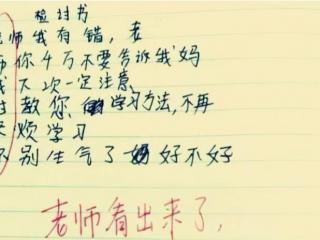 检讨书
老师我有错,老
师你千万不要告诉我妈
我大次一定注意
讨教您的学习方法,不再
厌烦学习
你别生气了 好不好
老师看出来了,